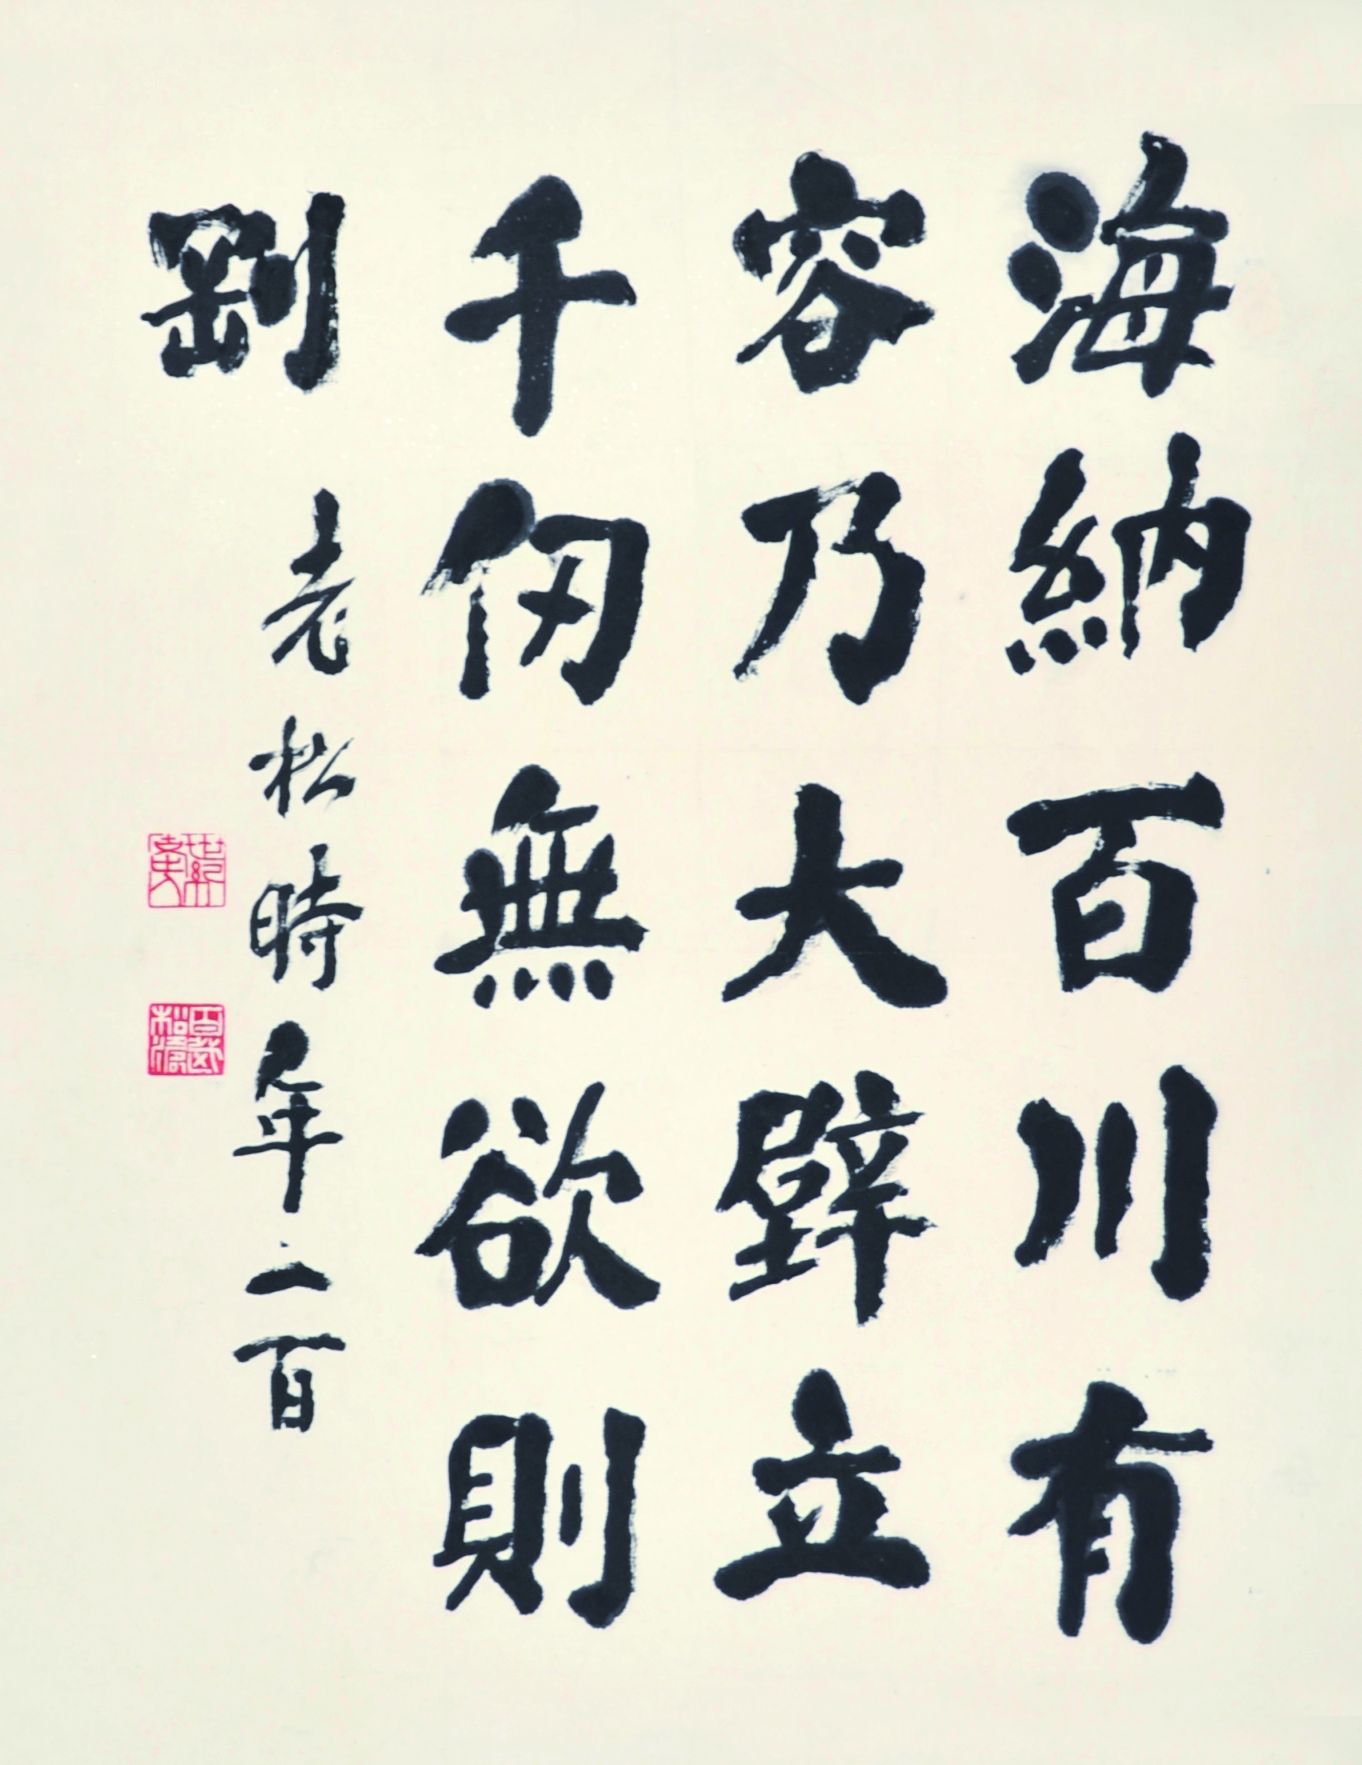 海納百川有
容乃大壁立
千仞無欲則
剛
老松時年一百